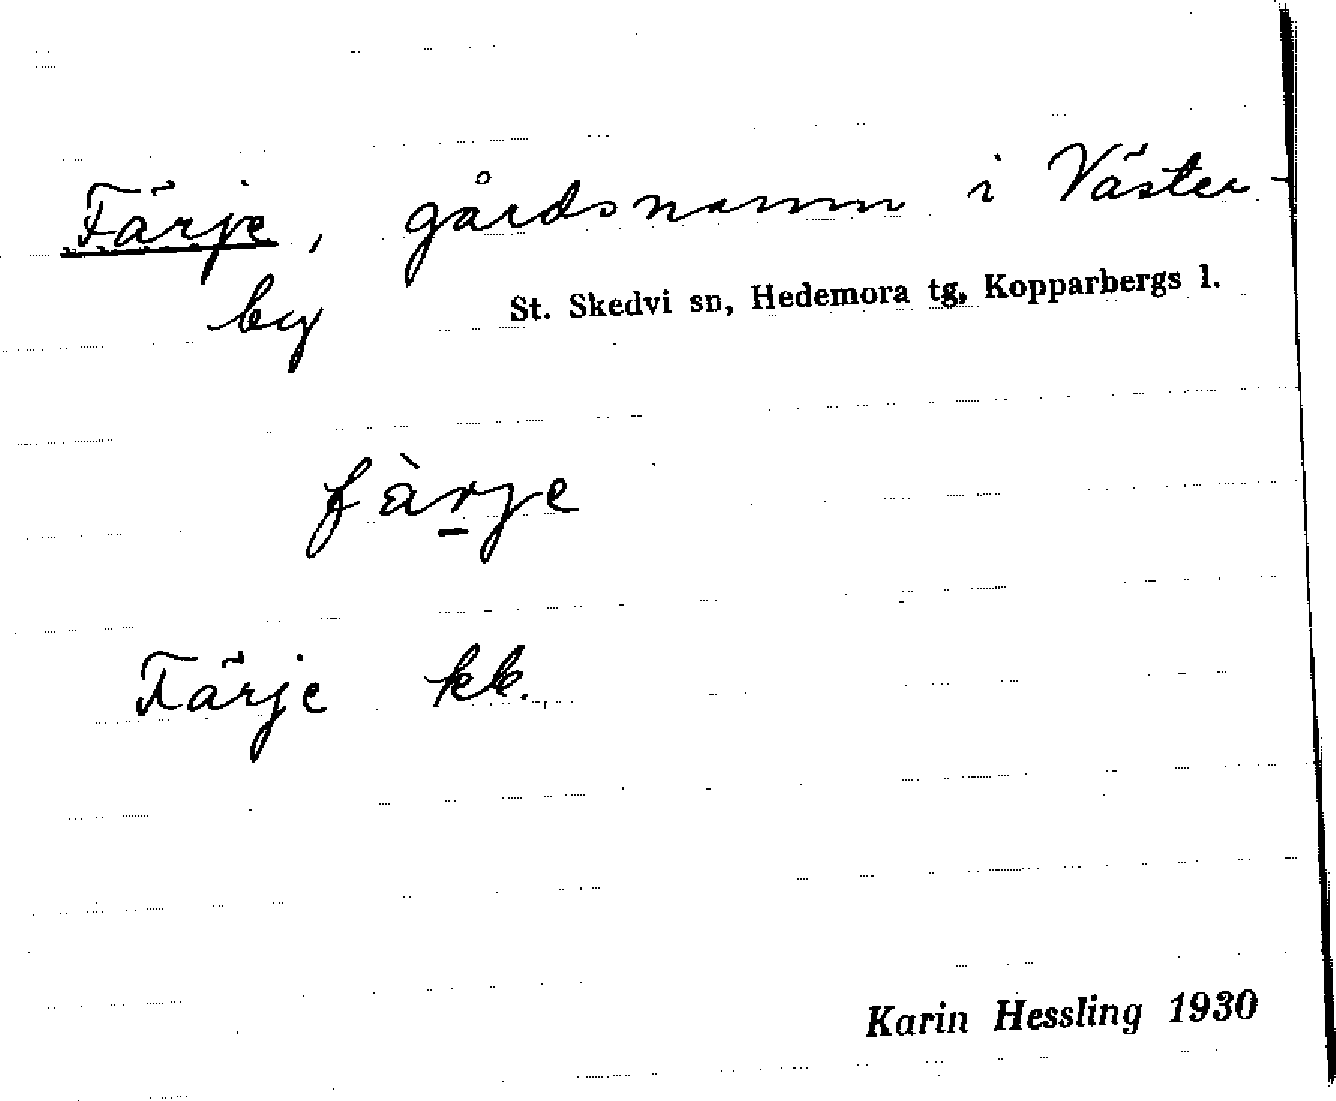 Färje, gårdsnamn i Väster-
by St. Skedvi sn, Hedemora tg, Kopparbergs l.
fàrje
Färje kk.
Karin Hessling 1930